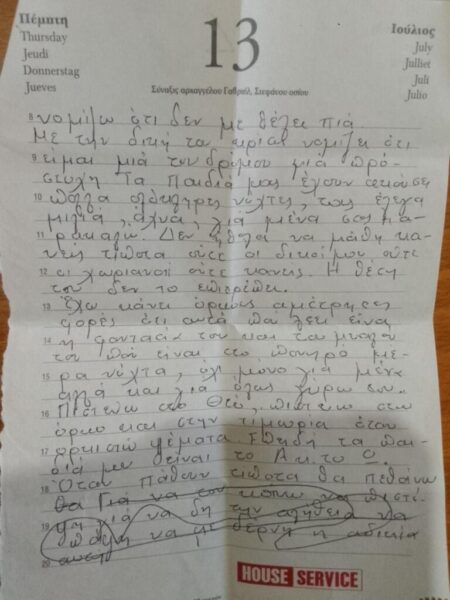 Πέμπτη
Thursday
Jeudi
Donnerstag
Jueves
13
Ιούλιος
July
Juillet
Juli
Julio
Σύναξις αρχαγγέλου Γαβριήλ, Στεφάνου οσίου
8 νομίζω ότι δεν με θέλει πιά
Με την δική του νομίζει ότι
9 είμαι μιά του δρόμου μιά πρό-
στυχη Τα Παιδιά μας έχουν ακούσει
10 πολλα ολόκληρες νύχτες, τους έλεγα
μιλιά, άχνα, γιά μένα σας πα-
11 ρακαλώ. Δεν ήθελα να μάθη κα-
νείς τίποτα ούτε οι δικοί μου ούτε
12 οι χωριανοί ούτε κανείς. Η θέση
του δεν το επιτρέπει.
13 Έχω κάνει όρκους αμέτρητες
φορές ότι αυτά που λέει είναι
14 η φαντασία του και το μυαλό
του που είναι στο πονηρό μέ-
15 ρα νύχτα, όχι μόνο γιά μένα
αλλά και για όλους γύρω του.
16 Πιστεύω στο Θεό, πιστεύω στον
όρκο και στην τιμωρία όταν
17 ορκιστώ ψέματα Επειδή τα παι-
διά μου είναι το Α κ. το Ω.
18 Όταν πάθουν τίποτα θα πεθάνω
θα Γιά να τον κάνω να πιστέ-
19 ψη γιά να δη την αλήθεια να
πάψη να με δέρνη η αδικία
20
HOUSE SERVICE